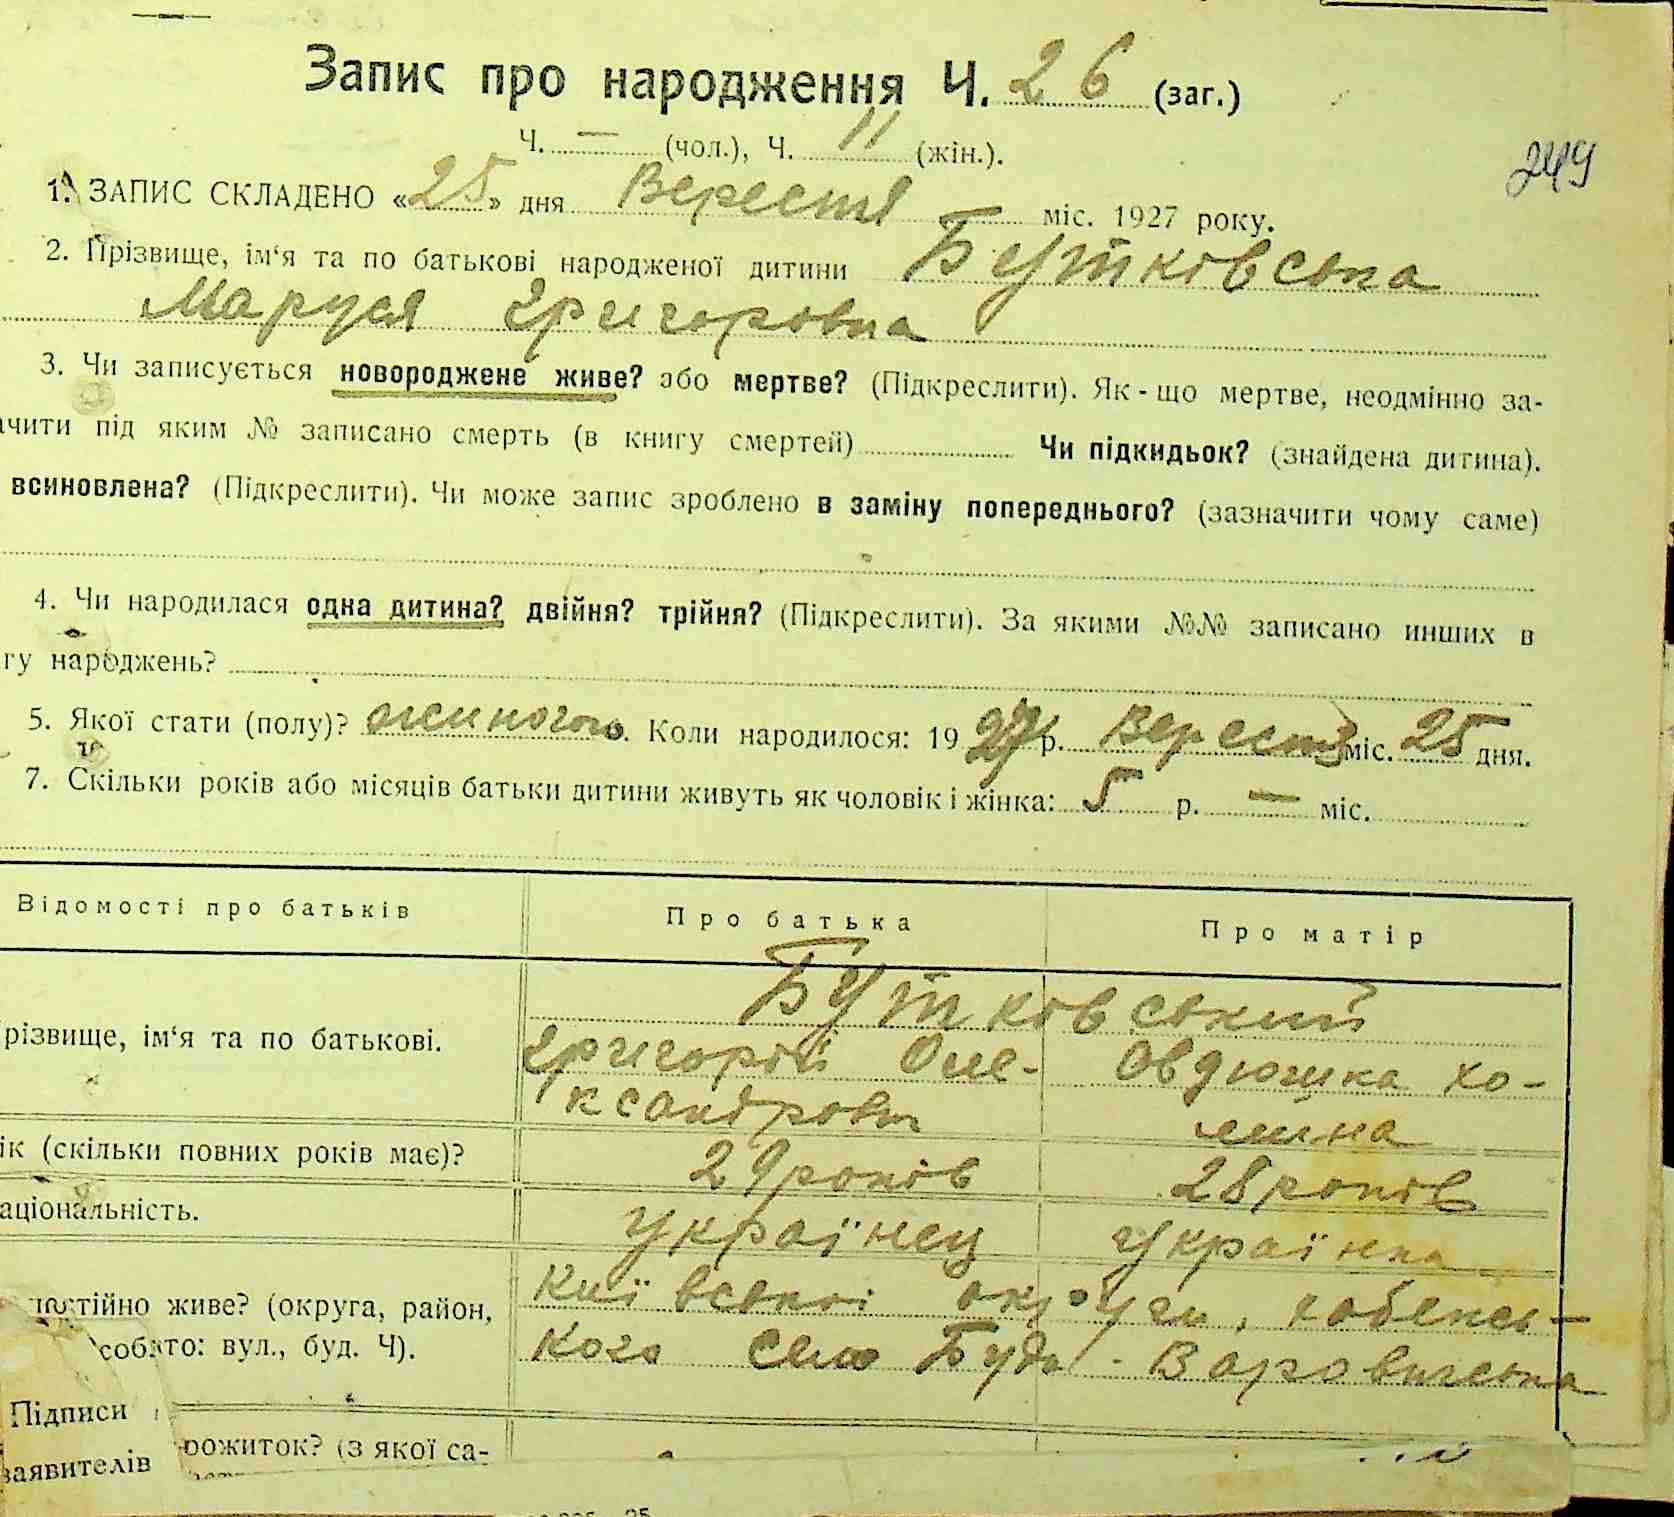 Запис про народження Ч. 26 (заг.)
Ч. — (чол.), Ч. 11 (жін.).
249
1. ЗАПИС СКЛАДЕНО «25» дня Верестя міс. 1927 року.
2. Прізвище, ім‘я та по батькові народженої дитини Бутковська
Маруся Григоровна
3. Чи записується новороджене живе? або мертве? (Підкреслити). Як-що мертве, неодмінно за-
ачити під яким № записано смерть (в книгу смертей) Чи підкидьок? (знайдена дитина).
всиновлена? (Підкреслити). Чи може запис зроблено в заміну попереднього? (зазначити чому саме)
4. Чи народилася одна дитина? двійня? трійня? (Підкреслити). За якими №№ записано инших в
гу народжень?
5. Якої стати (полу)? жиночого. Коли народилося: 1927 р. Верестя міс. 25 дня.
7. Скільки років або місяців батьки дитини живуть як чоловік і жінка: 5 р. — міс.
Відомості про батьків Про батька Про матір
Бутковський
різвище, ім‘я та по батькові. Григорій Оле- Овдюшка Хо-
ксандрович мина
ік (скільки повних років має)? 29 років 28 років
аціональність. українец українка
Київської округи, Хабенсь-
тійно живе? (округа, район,
кого село Буда-Варовичська
собято: вул., буд. Ч).
Підписи
рожиток? (з якої са-
заявителів